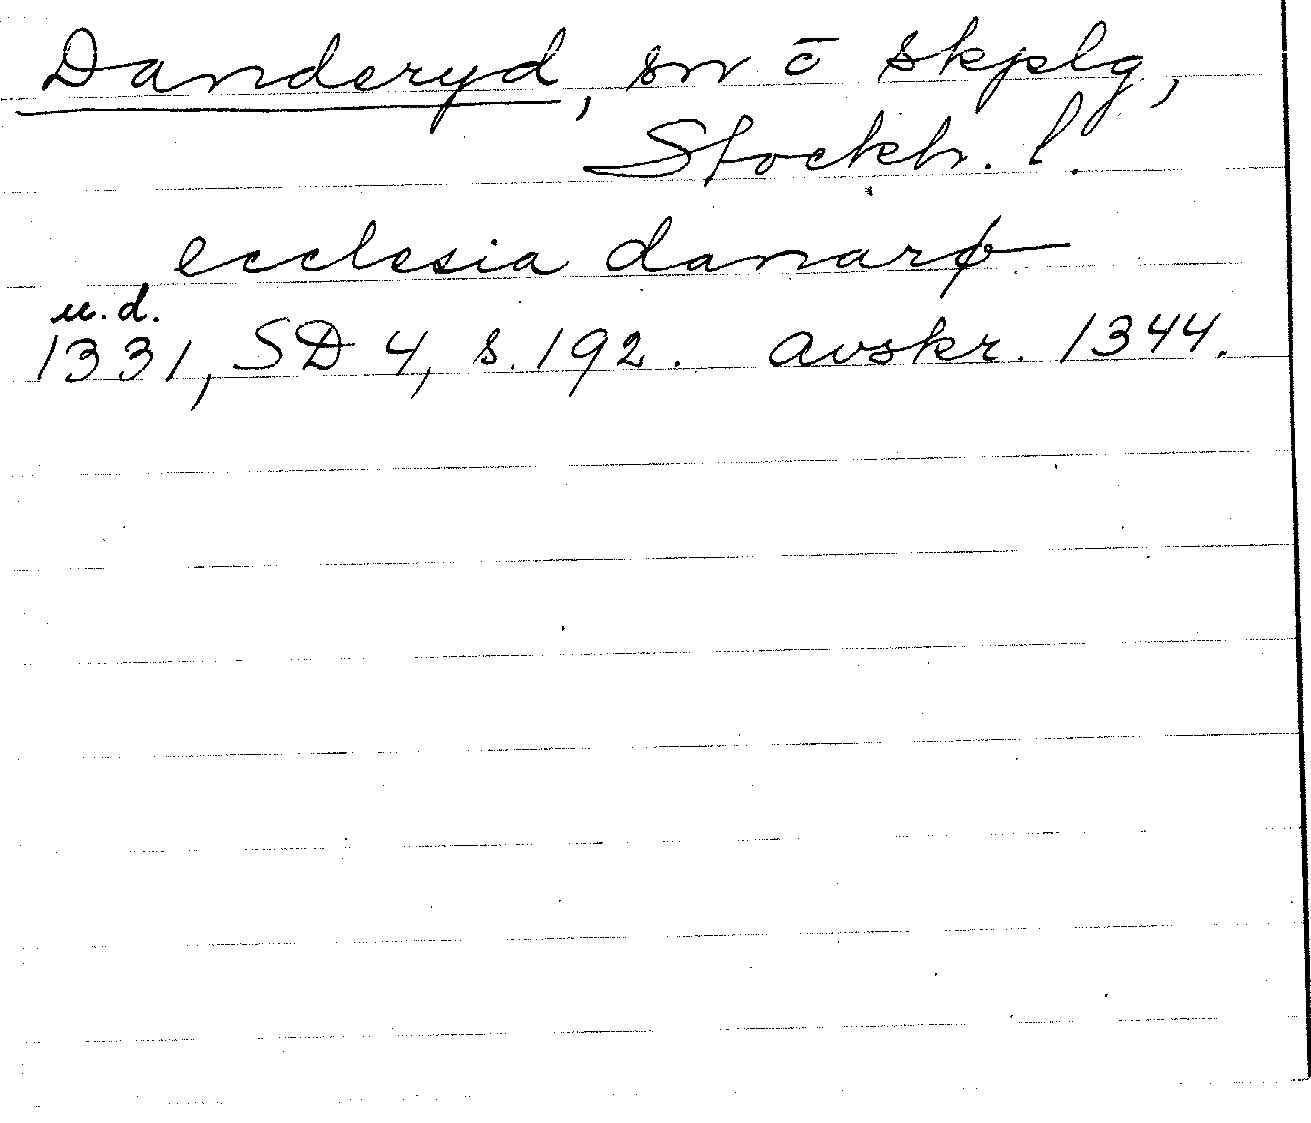 Danderyd, sn o skplg,
Stockh. l.
ecclesia danarø
u.d.
1331, SD 4, s. 192. avskr. 1344.